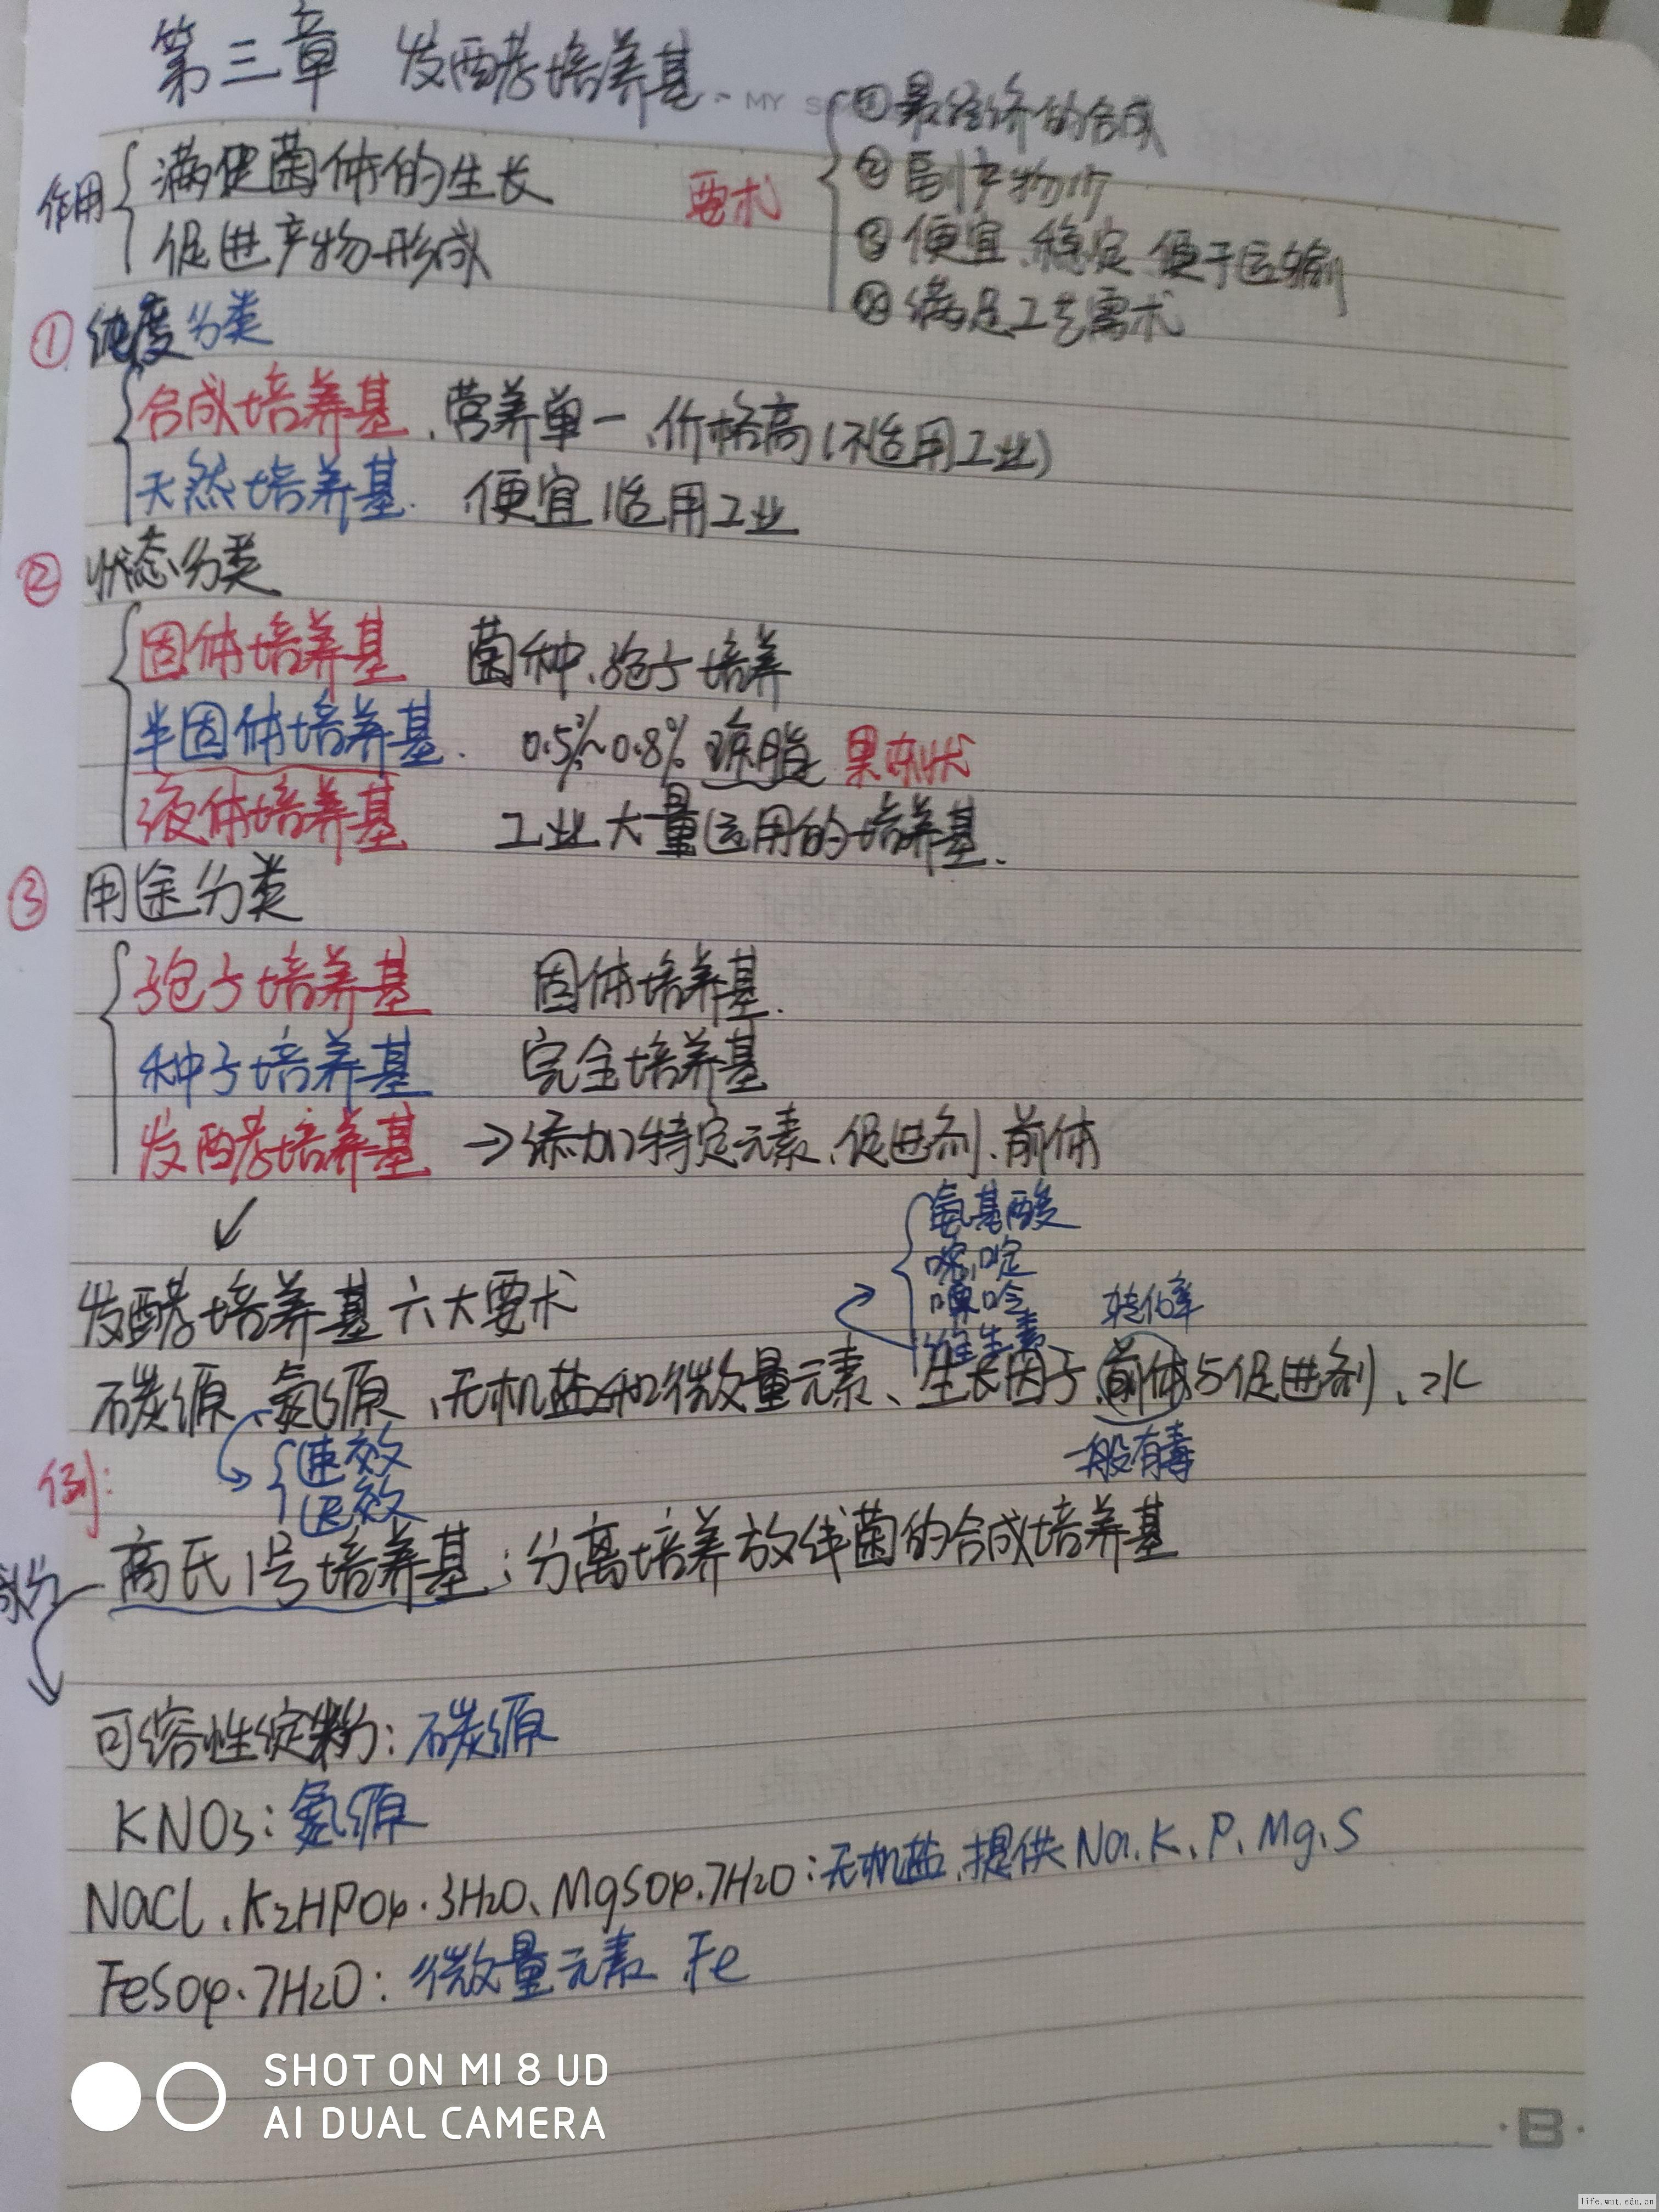 第三章 发酵培养基
MY
作用
满足菌体的生长
促进产物形成
要求
①最经济的合成
②副产物少
③便宜、稳定、便于运输
④满足工艺需求
① 纯度分类
合成培养基、营养单一、价格高(不适用工业)
天然培养基. 便宜 适用工业
② 状态分类
固体培养基 菌种、孢子培养
半固体培养基. 0.5%~0.8% 琼脂 果冻状
液体培养基 工业大量运用的培养基.
③ 用途分类
孢子培养基 固体培养基.
种子培养基 完全培养基
发酵培养基 →添加特定元素、促进剂、前体
氨基酸
嘧啶
嘌呤
维生素
转化率
发酵培养基六大要求
碳源、氮源、无机盐和微量元素、生长因子、前体与促进剂、水
速效
迟效
一般有毒
例:
成分
高氏1号培养基:分离培养放线菌的合成培养基
可溶性淀粉:碳源
KNO3:氮源
NaCl、K2HPO4·3H2O、MgSO4·7H2O:无机盐、提供Na、K、P、Mg、S
FeSO4·7H2O:微量元素 Fe
SHOT ON MI 8 UD
AI DUAL CAMERA
·B·
life.wut.edu.cn